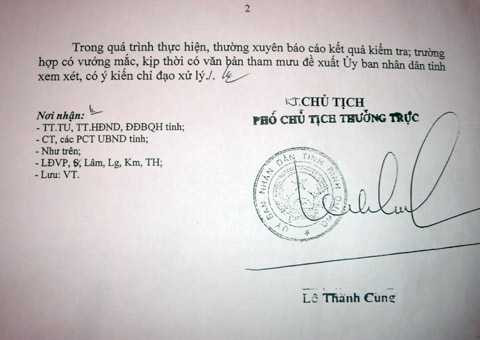 2
Trong quá trình thực hiện, thường xuyên báo cáo kết quả kiểm tra; trường
hợp có vướng mắc, kịp thời có văn bản tham mưu đề xuất Ủy ban nhân dân tỉnh
xem xét, có ý kiến chỉ đạo xử lý./.
Nơi nhận:
- TT.TU, TT.HĐND, ĐĐBQH tỉnh;
- CT, các PCT UBND tỉnh;
- Như trên;
- LĐVP, Lâm, Lg, Km, TH;
- Lưu: VT.
KT.CHỦ TỊCH
PHÓ CHỦ TỊCH THƯỜNG TRỰC
ỦY BAN NHÂN DÂN TỈNH BÌNH DƯƠNG
Lê Thành Cung